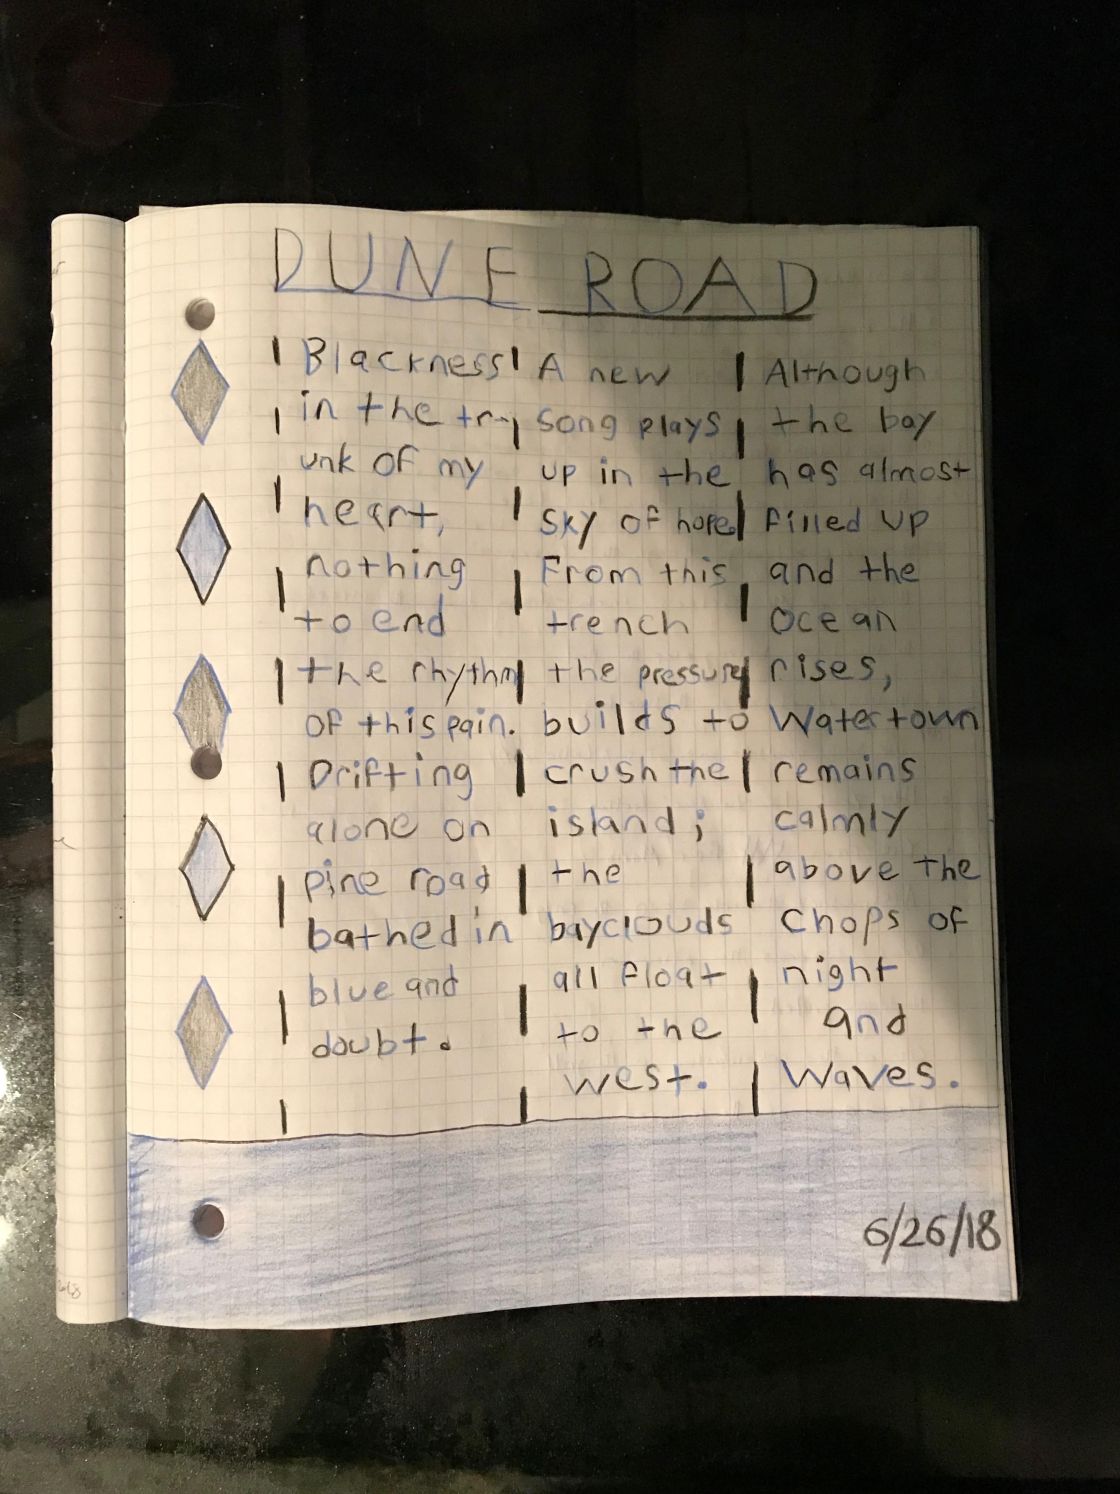 DUNE ROAD
Blackness
in the tr-
unk of my
heart,
nothing
to end
the rhythm
of this pain.
Drifting
alone on
pine road
bathed in
blue and
doubt.
A new
song plays
up in the
sky of hope.
From this
trench
the pressure
builds to
crush the
island;
the
bayclouds
all float
to the
west.
Although
the bay
has almost
filled up
and the
ocean
rises,
Watertown
remains
calmly
above the
chops of
night
and
waves.
6/26/18